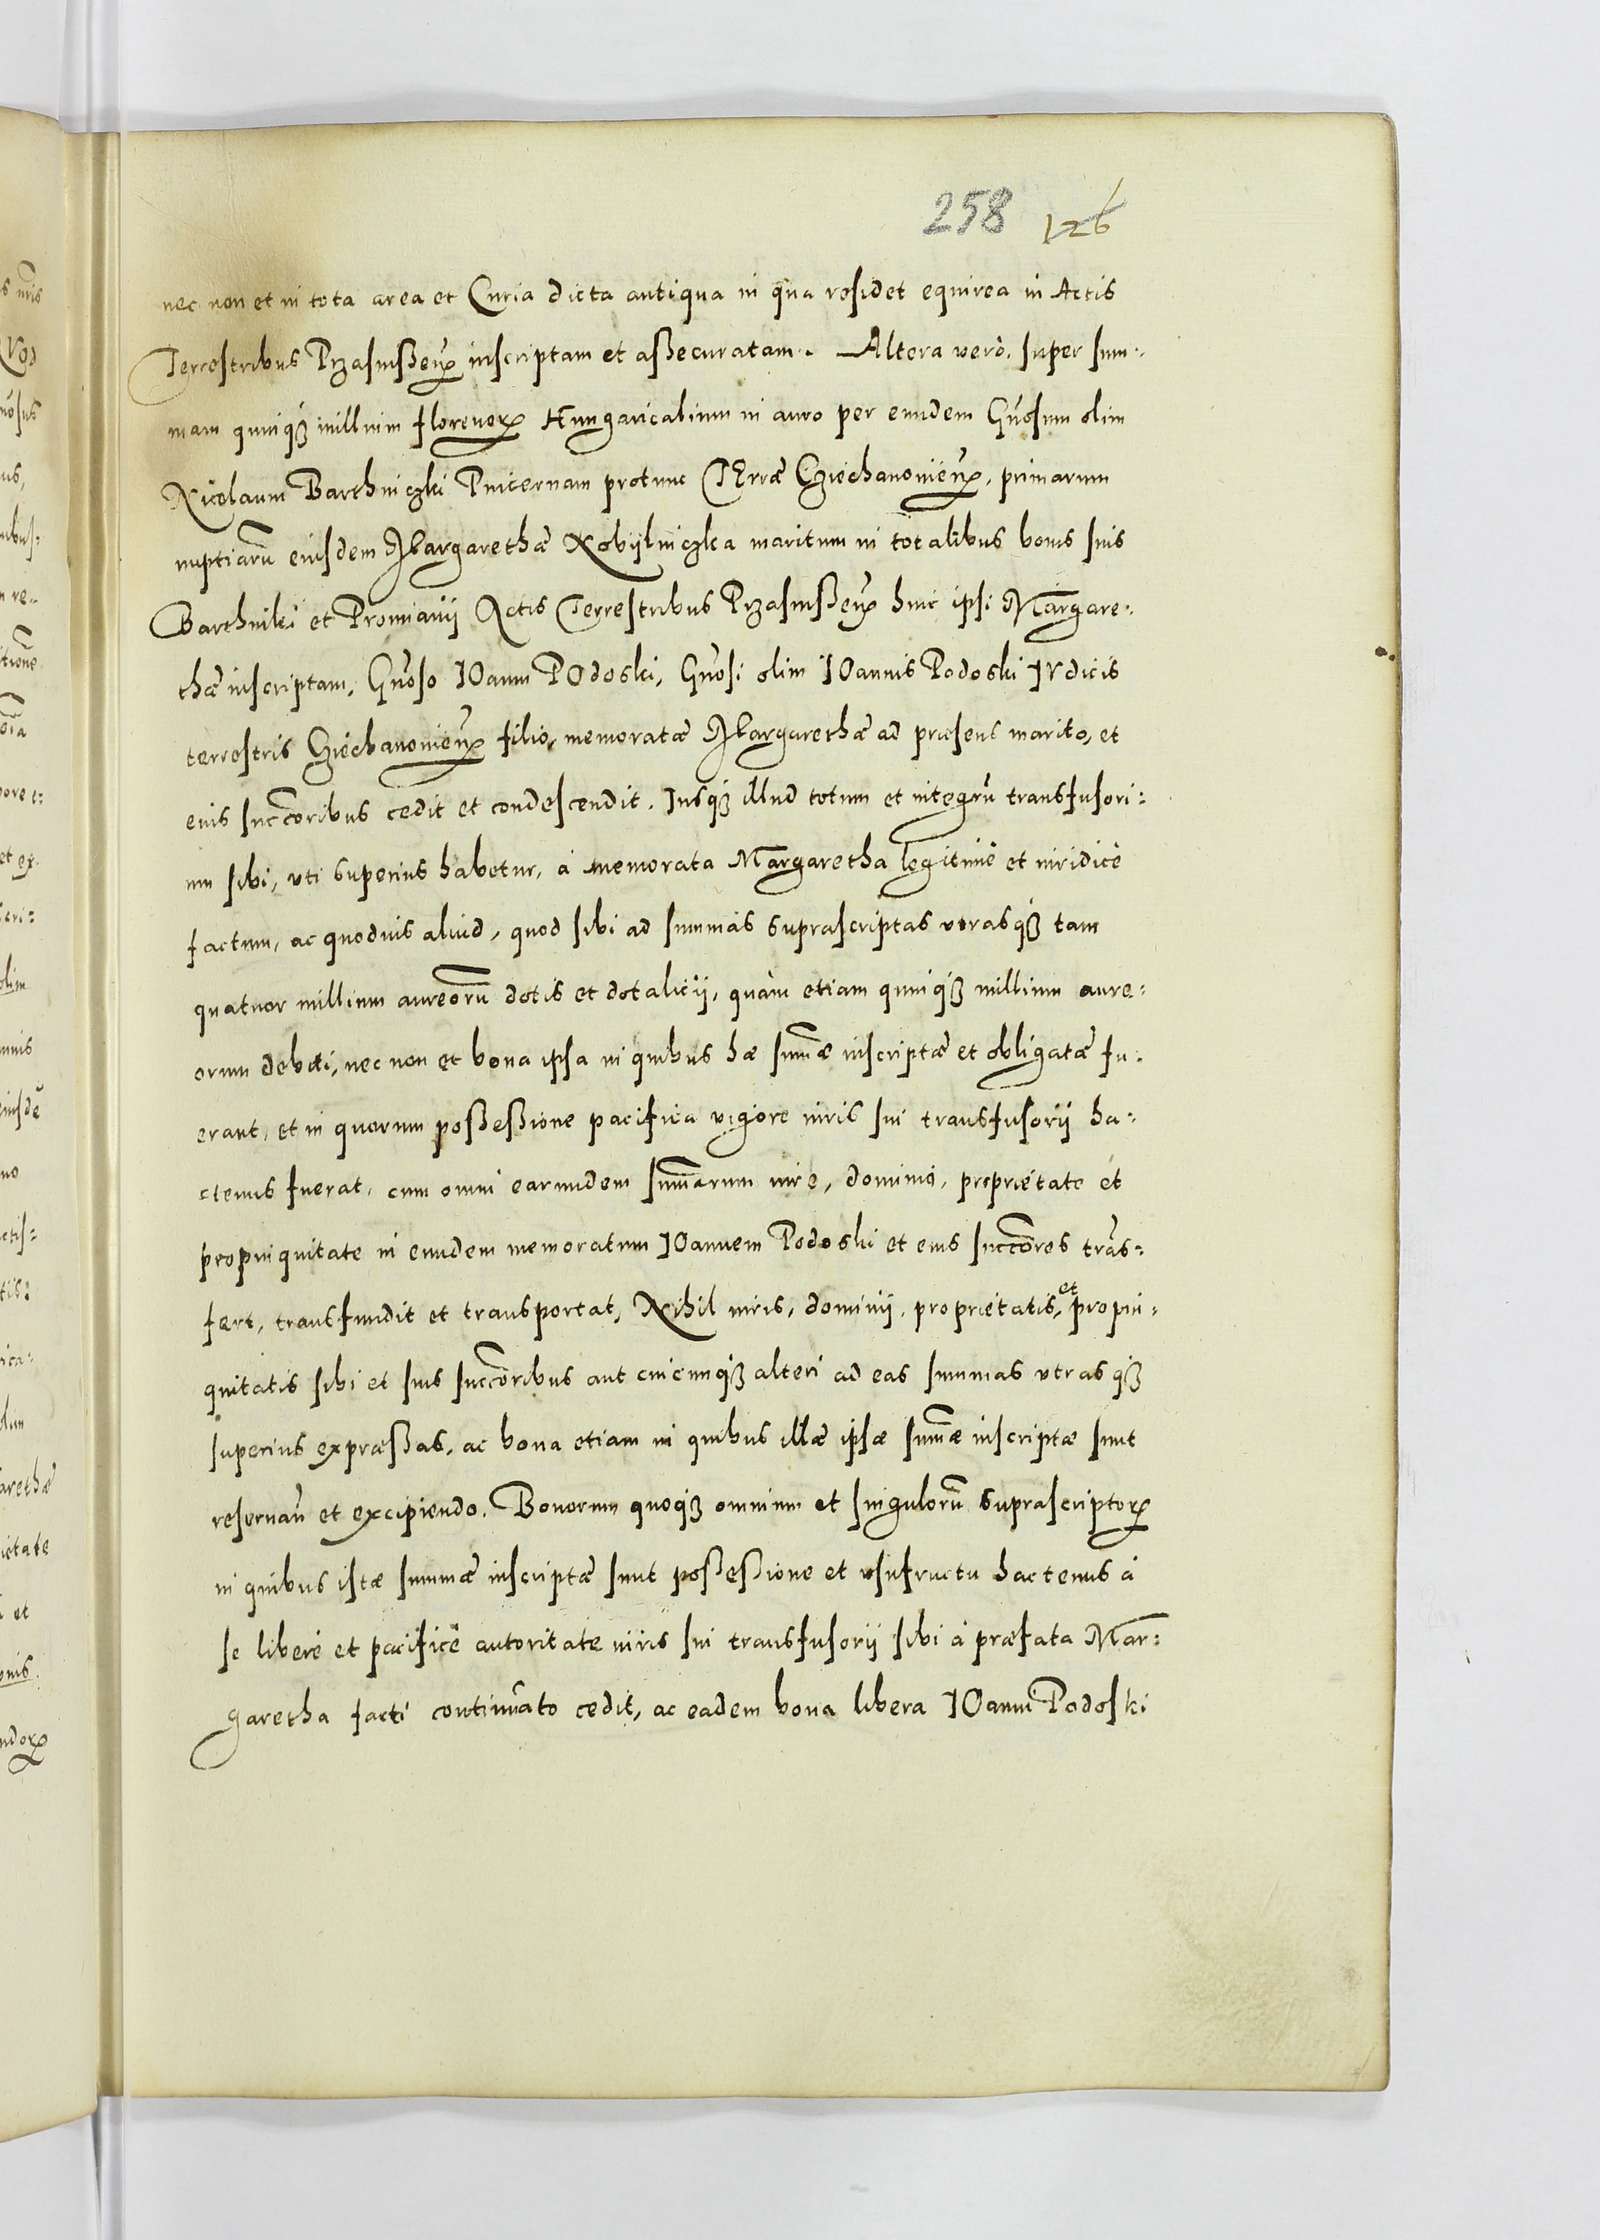 258 126
nec non et in tota area et Curia dicta antiqua in qua residet equirea in Actis
Terrestribus Przasnißeñ inscriptam et aßecuratam. Altera verò, super sum:
mam quinqʒ millium florenorꝝ Hungaricalium in auro per eundem Gn̄osum olim
Nicolaum Barthniczki Pincernam protunc TErræ Cziechanonieñ, primarum
nuptiarū eiusdem Margarethæ Kobijlniczka maritum in totalibus bonis suis
Barthniki et Promianij Actis Terrestribus Przasnißeñ huic ipsi Margare:
thæ inscriptam, Gn̄oso IOanni POdoski, Gn̄osi olim IOannis Podoski IVdicis
terrestris Cziechanonieñ filio, memoratæ Margarethæ ad præsens marito, et
eius succ̄oribus cedit et condescendit. Iusqʒ illud totum et integrū transfusori:
um sibi, vti superius habetur, à memorata Margaretha legitimè et iuridicè
factum, ac quoduis aliud, quod sibi ad summas suprascriptas vtrasqʒ tam
quatuor millium aureorū dotis et dotalicij, quàm etiam quinqʒ millium aure:
orum debiti, nec non et bona ipsa in quibus hæ sum̄æ inscriptæ et obligatæ fu:
erant, et in quorum poßeßione pacifica vigore iuris sui transfusorij ha:
ctenus fuerat, cum omni earundem sum̄arum iure, dominio, proprietate et
propinquitate in eundem memoratum IOannem Podoski et eius succ̄ores trās:
fert, transfundit et transportat, Nihil iuris, dominij, proprietatis, et propin:
quitatis sibi et suis succ̄oribus aut cuicunqʒ alteri ad eas summas vtrasqʒ
superius expræßas, ac bona etiam in quibus illæ ipsæ sum̄æ inscriptæ sunt
reseruan̄ et excipiendo. Bonorum quoqʒ omnium et singulorū suprascriptorꝝ
in quibus istæ summæ inscriptæ sunt poßeßione et vsufructu hactenus à
se liberè et pacificè autoritate iuris sui transfusorij sibi à præfata Mar:
garetha facti continuato cedit, ac eadem bona libera IOanni Podoski